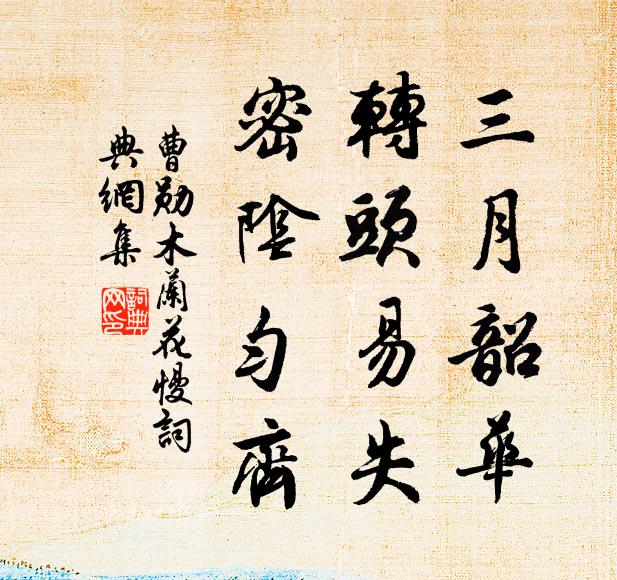 三月韶華
轉頭易失
密陰勻齊
曹勛木蘭花慢詞
典網集
詞典
网印